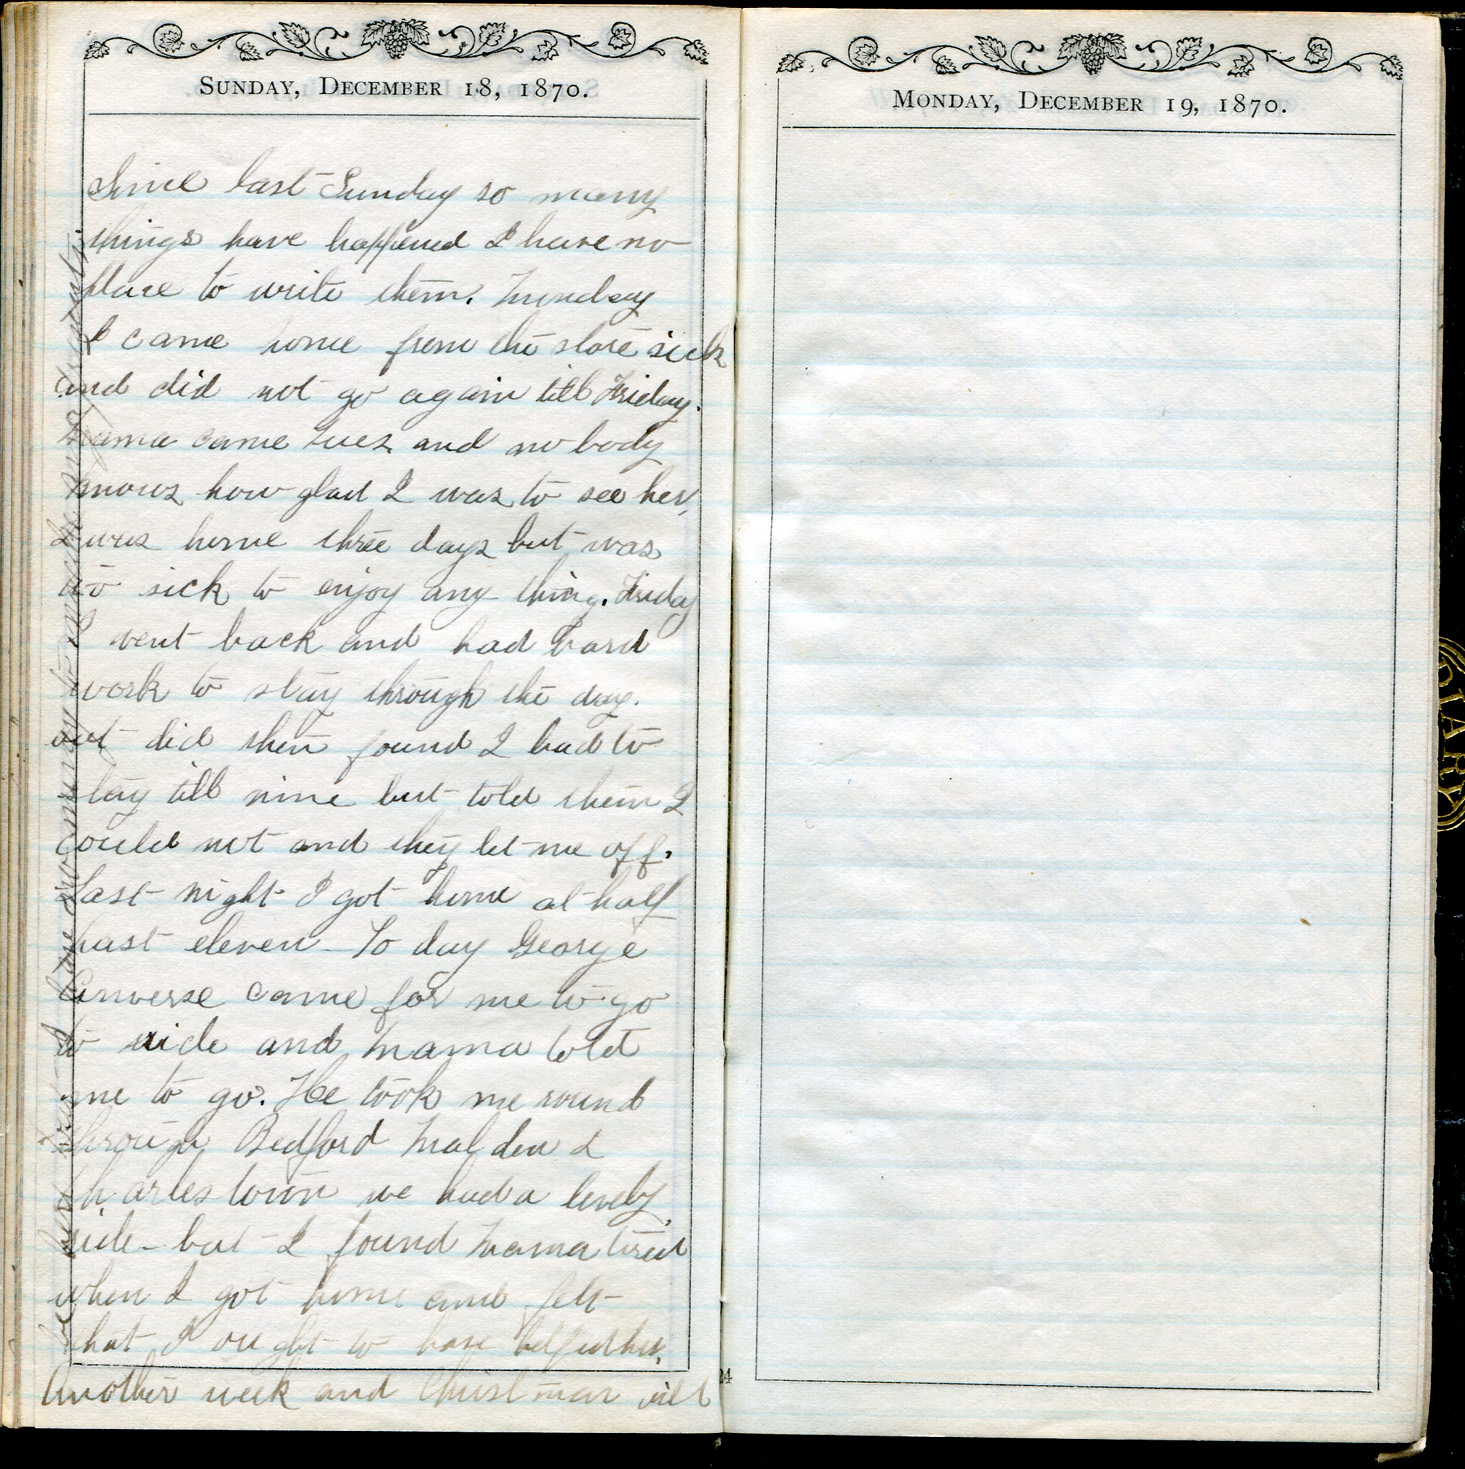 SUNDAY, DECEMBER 18, 1870.
Since last Sunday so many
things have happened I have no
place to write them. Munday
I came home from the store sick
and did not go again till Friday.
Mama came Tues. and no body
knows how glad I was to see her,
I was home three days but was
to sick to enjoy any thing. Friday
I went back and had hard
work to stay through the day.
but did then found I had to
stay till nine but told them I
could not and they let me off.
Last night I got home at half
past eleven. To day George
Converse came for me to go
to ride and Mama told
me to go. He took me round
through Bedford Malden &
Charlestown we had a lovely
ride - but I found Mama tired
when I got home and felt
that I ought to have helped her.
Another week and Christmas will
be here but I have no money to
MONDAY, DECEMBER 19, 1870.
DIARY